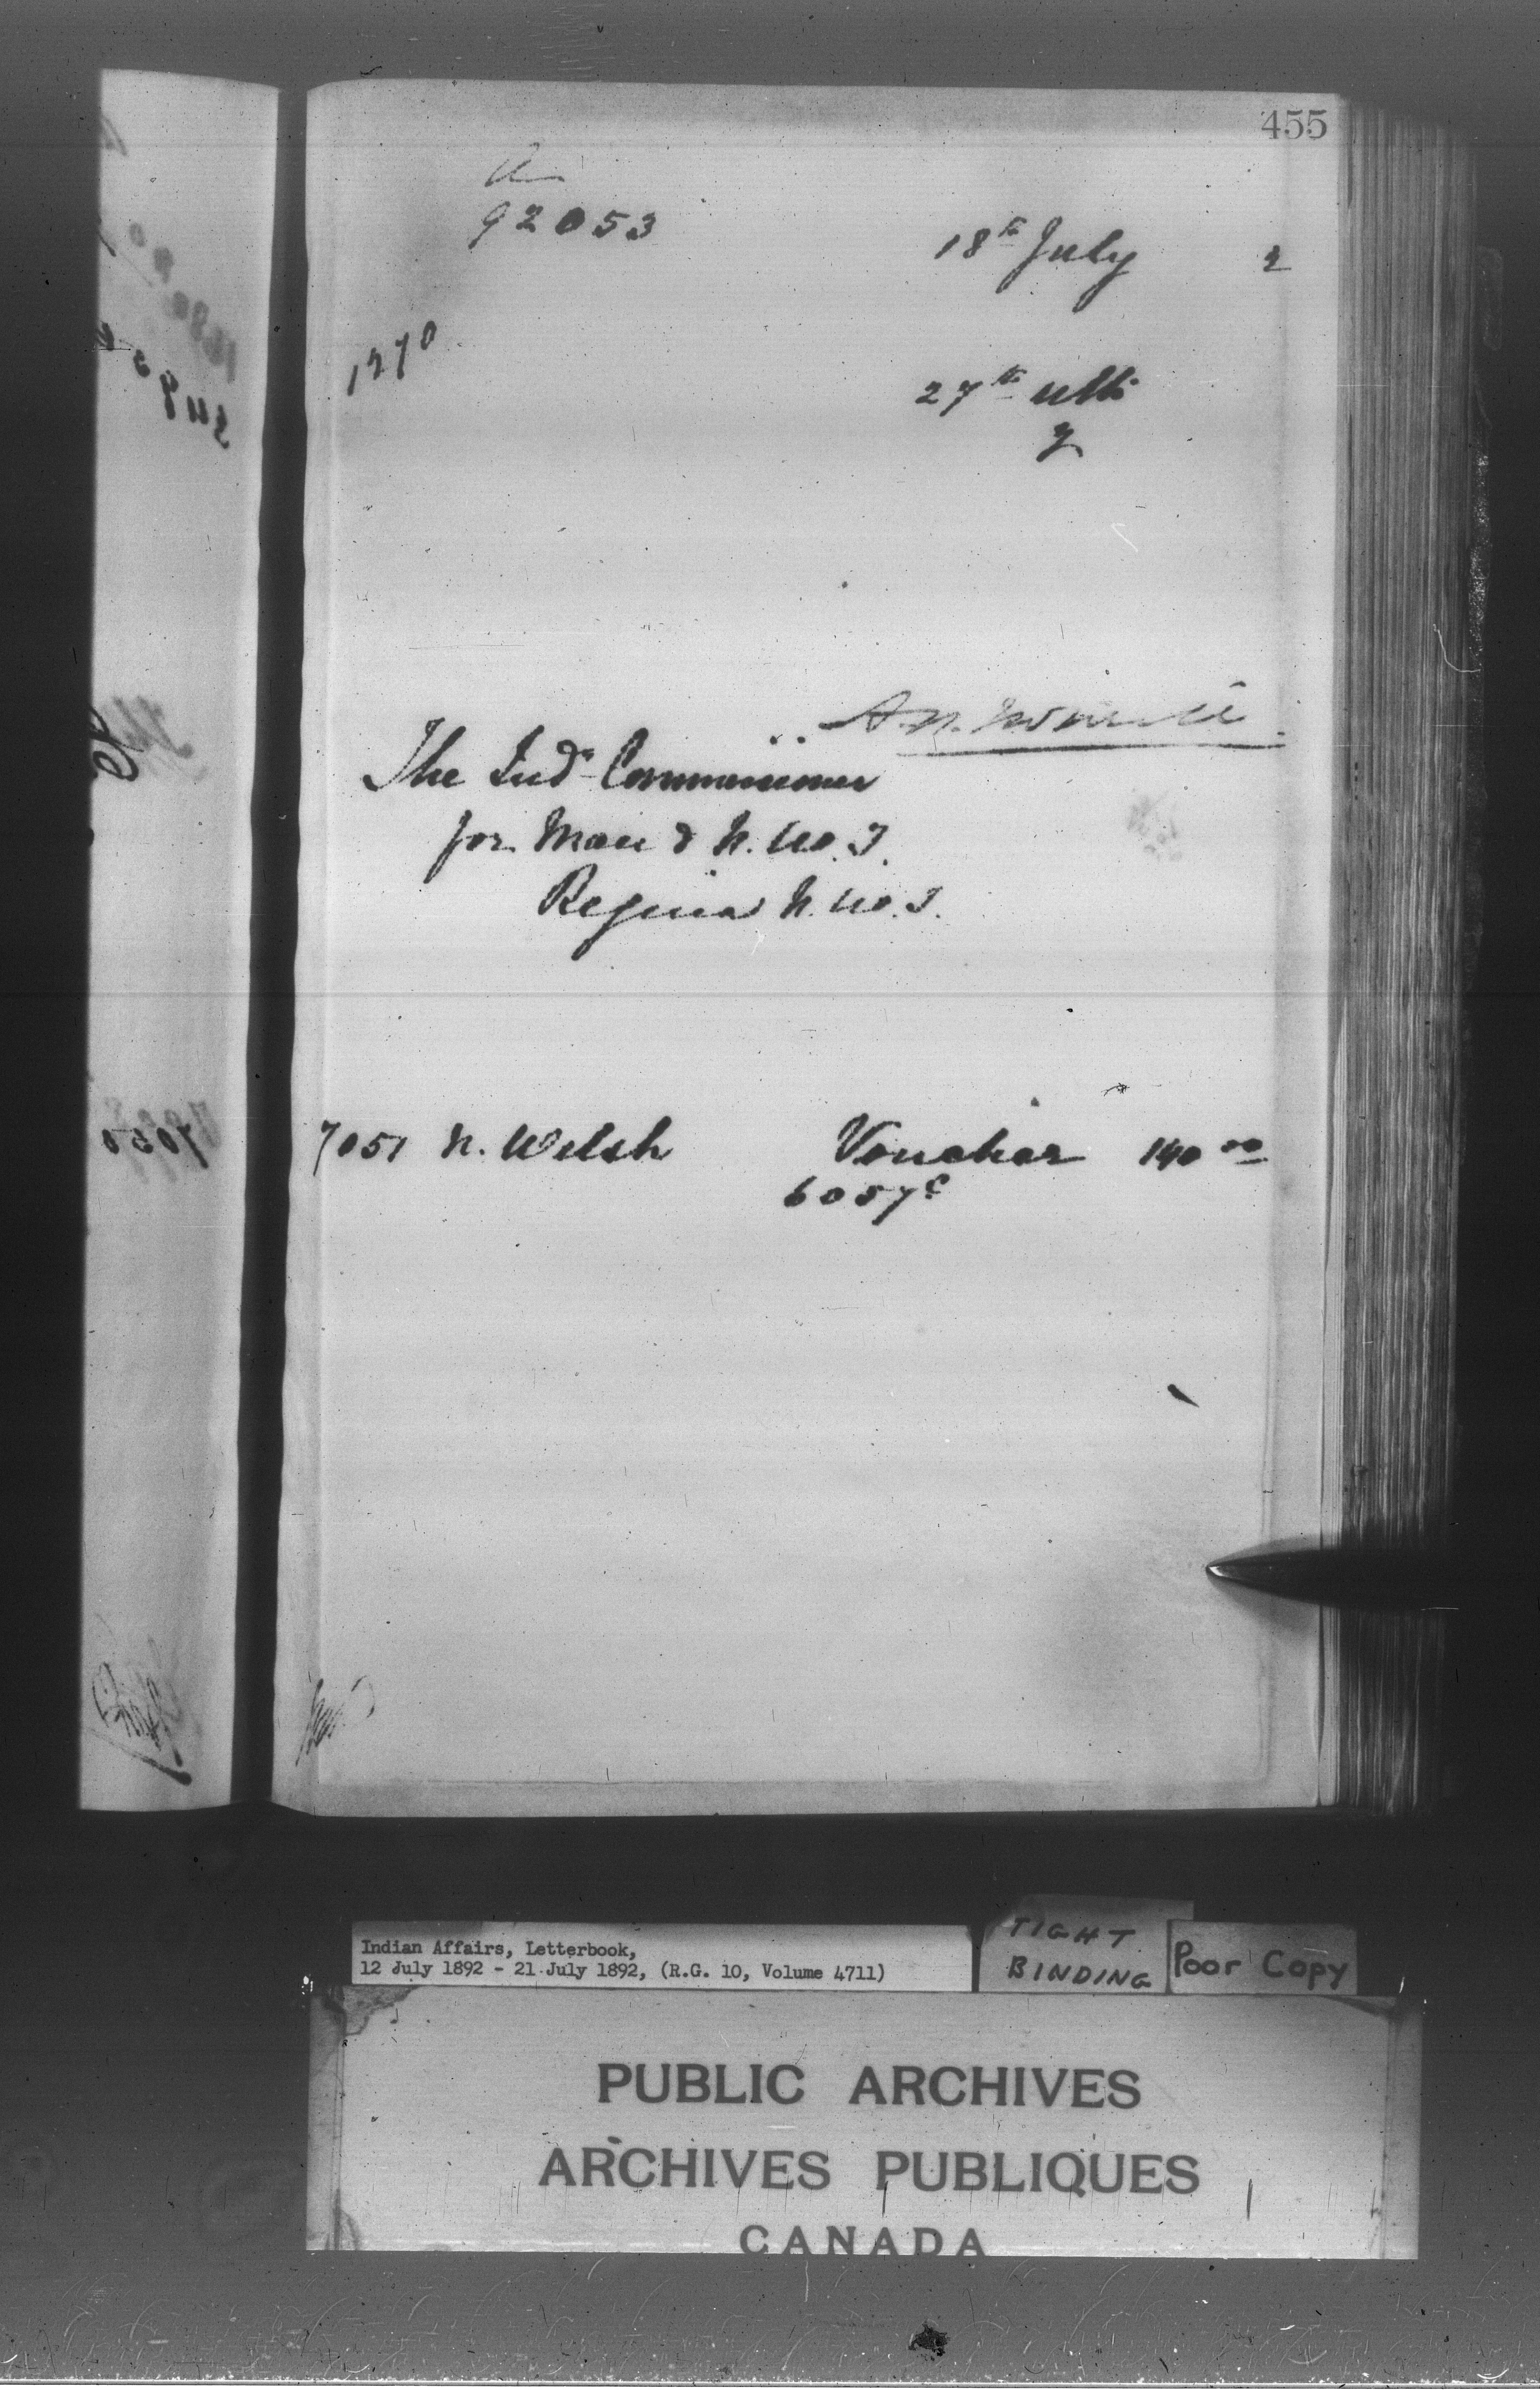 455
92053
18th July 2
1270
27th ulto
2
The Ind. Commissioner
for Man & N.W.T.
Regina N.W.T.
7051 N. Welsh Voucher 140 00
6057c
7050
TIGHT
BINDING
Poor Copy
Indian Affairs, Letterbook,
12 July 1892 - 21 July 1892, (R.G. 10, Volume 4711)
PUBLIC ARCHIVES
ARCHIVES PUBLIQUES
CANADA